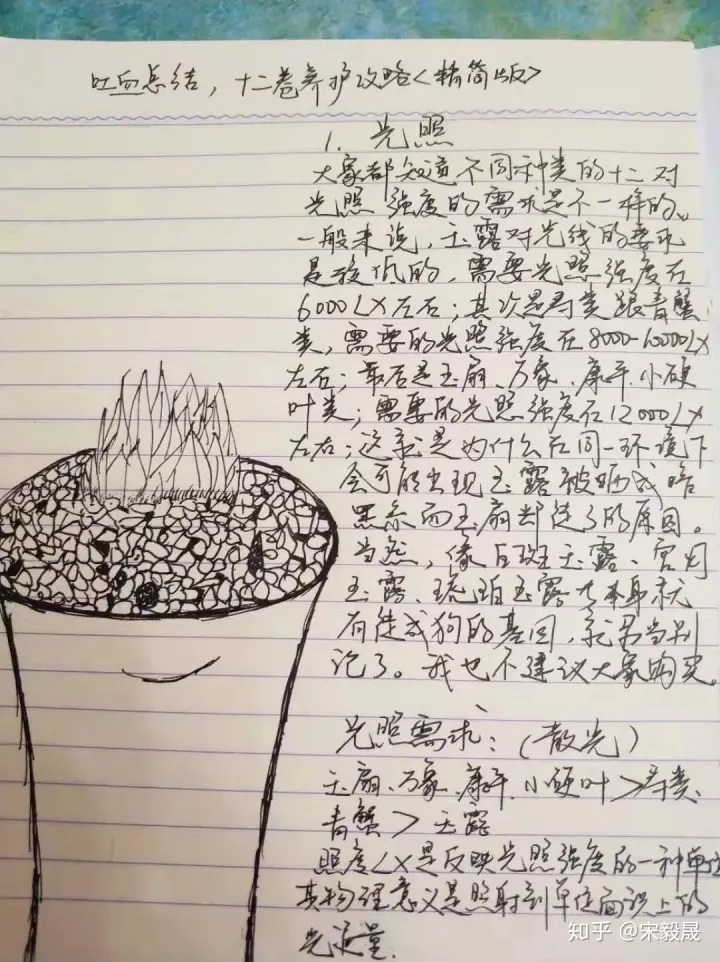 吐血总结，十二卷养护攻略<精简版>
1. 光照
大家都知道不同种类的十二对
光照强度的需求是不一样的。
一般来说，玉露对光线的要求
是较低的，需要光照强度在
6000LX左右；其次是寿类跟青蟹
类，需要的光照强度在8000-10000LX
左右；最后是玉扇、万象、康平、小硬
叶类；需要的光照强度在12000LX
左右；这就是为什么在同一环境下
会可能出现玉露被晒成暗
黑系而玉扇却徒了的原因。
当然，像白斑玉露、宫灯
玉露、琉珀玉露本身就
有徒成狗的基因，就另当别
记了。我也不建议大家购买。
光照需求：（散光）
玉扇、万象、康平、小硬叶>寿类、
青蟹>玉露
照度LX是反映光照强度的一种单位
其物理意义是照射到单位面积上的
光通量.
知乎 @宋毅晟